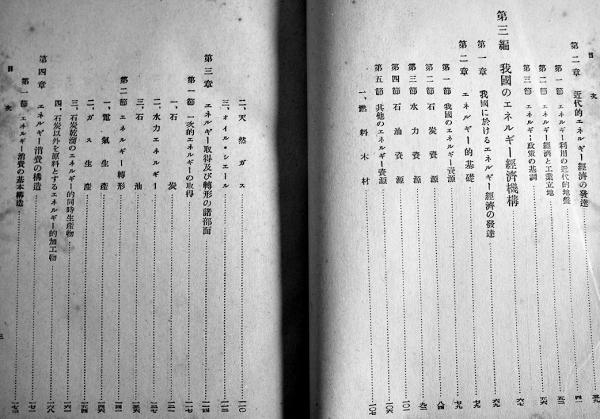 目次
第二章 近代的エネルギー經濟の發達
第一節 エネルギー利用の近代的地盤
第二節 エネルギー經濟と工業立地
第三節 エネルギー政策の基調
第三編 我國のエネルギー經濟機構
第一章 我國に於けるエネルギー經濟の發達
第二章 エネルギー的基礎
第一節 我國のエネルギー資源
第二節 石炭資源
第三節 水力資源
第四節 石油資源
第五節 其他のエネルギー資源
一、燃料木材
二、天然ガス
三、オイル・シェール
第三章 エネルギー取得及び轉形の諸部面
第一節 一次的エネルギーの取得
一、石炭
二、水力エネルギー
三、石油
第二節 エネルギー轉形
一、電氣生産
二、ガス生産
三、石炭乾餾のエネルギー的同時生産物
四、石炭以外を原料とするエネルギー的加工物
第四章 エネルギー消費の構造
第一節 エネルギー消費の基本構造
目次
三